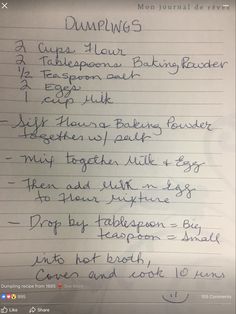 Mon journal de rêves
DUMPLINGS
2 Cups Flour
2 Tablespoons Baking Powder
1/2 Teaspoon salt
2 Eggs
1 cup Milk
- Sift Flour & Baking Powder
together w/ salt
- Mix together Milk & Egg
- Then add Milk n Egg
to Flour mixture
- Drop by tablespoon = Big
teaspoon = Small
into hot broth,
Cover and cook 10 mins
Dumpling recipe from 1985
895
105 Comments
Like
Share